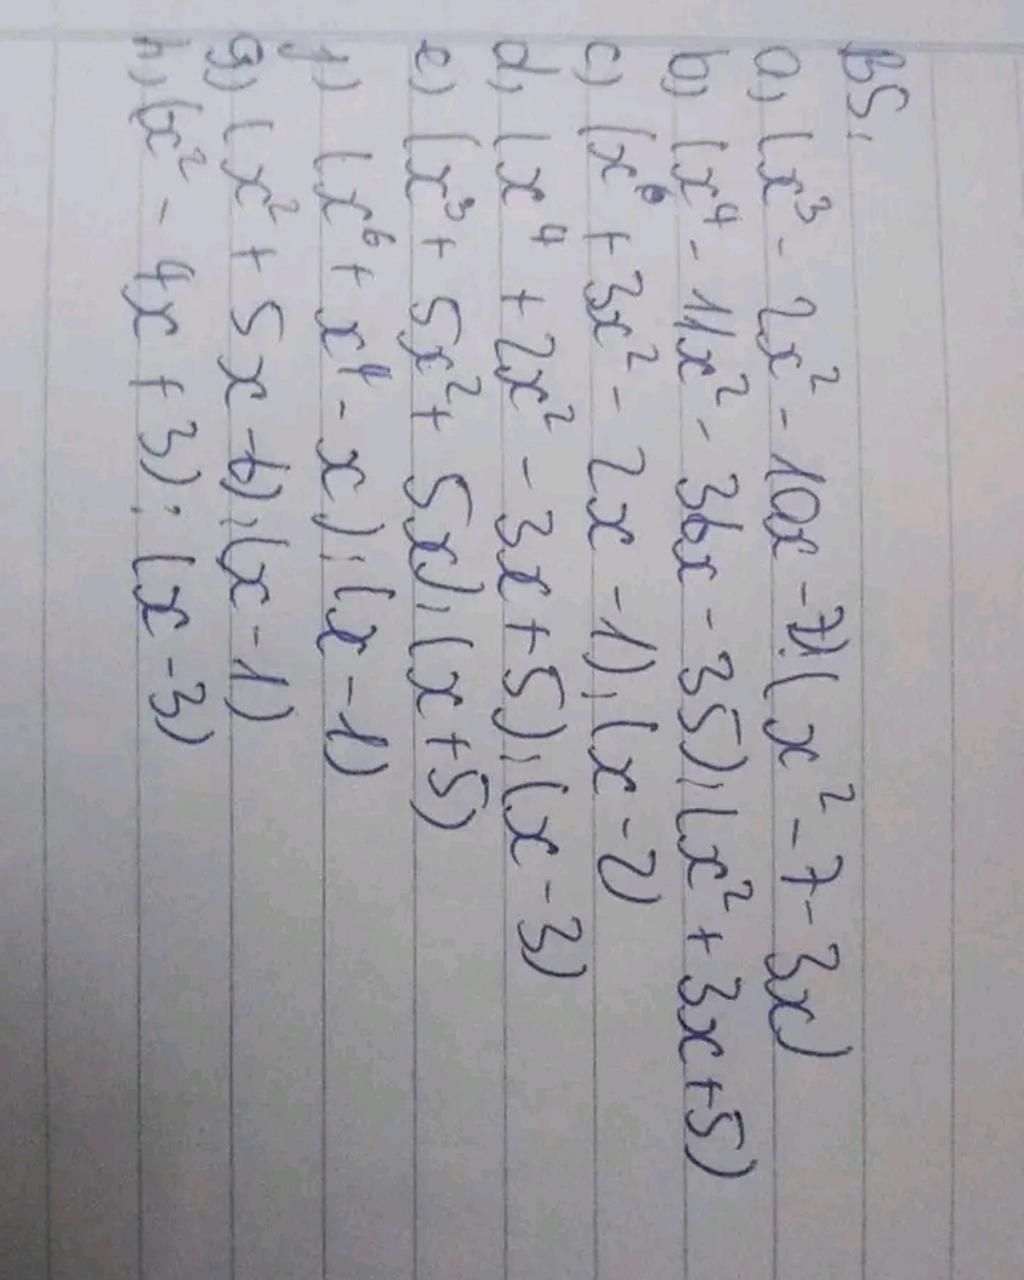 B5,
a) (x³ - 2x² - 10x - 7) : (x² - 7 - 3x)
b) (x⁴ - 11x² - 36x - 35) : (x² + 3x + 5)
c) (x⁶ + 3x² - 2x - 1) : (x - 2)
d) (x⁴ + 2x² - 3x + 5) : (x - 3)
e) (x³ + 5x² + 5x) : (x + 5)
f) (x⁶ + x⁴ - x) : (x - 1)
g) (x² + 5x - 6) : (x - 1)
h) (x² - 4x + 3) : (x - 3)